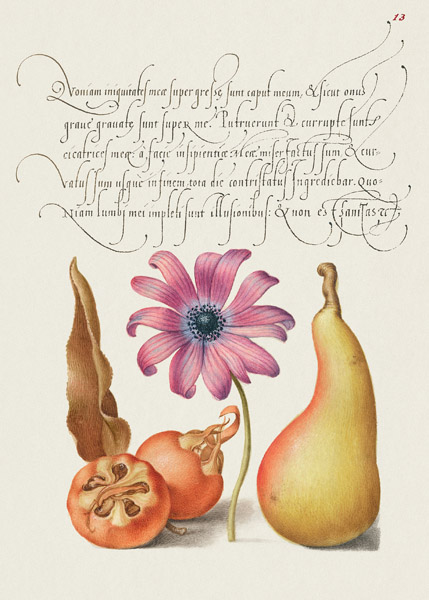 13
Quoniam iniquitates meæ supergressę sunt caput meum, & sicut onus
graue grauatę sunt super me. Putruerunt & corruptę sunt
cicatrices meę: a facie insipientiæ Meæ. miser factus sum & cur-
Vatus sum usque in finem, tota die contristatus Ingrediebar. Quo-
Niam lumbi mei impleti sunt illusionibus: & non est sanitas &